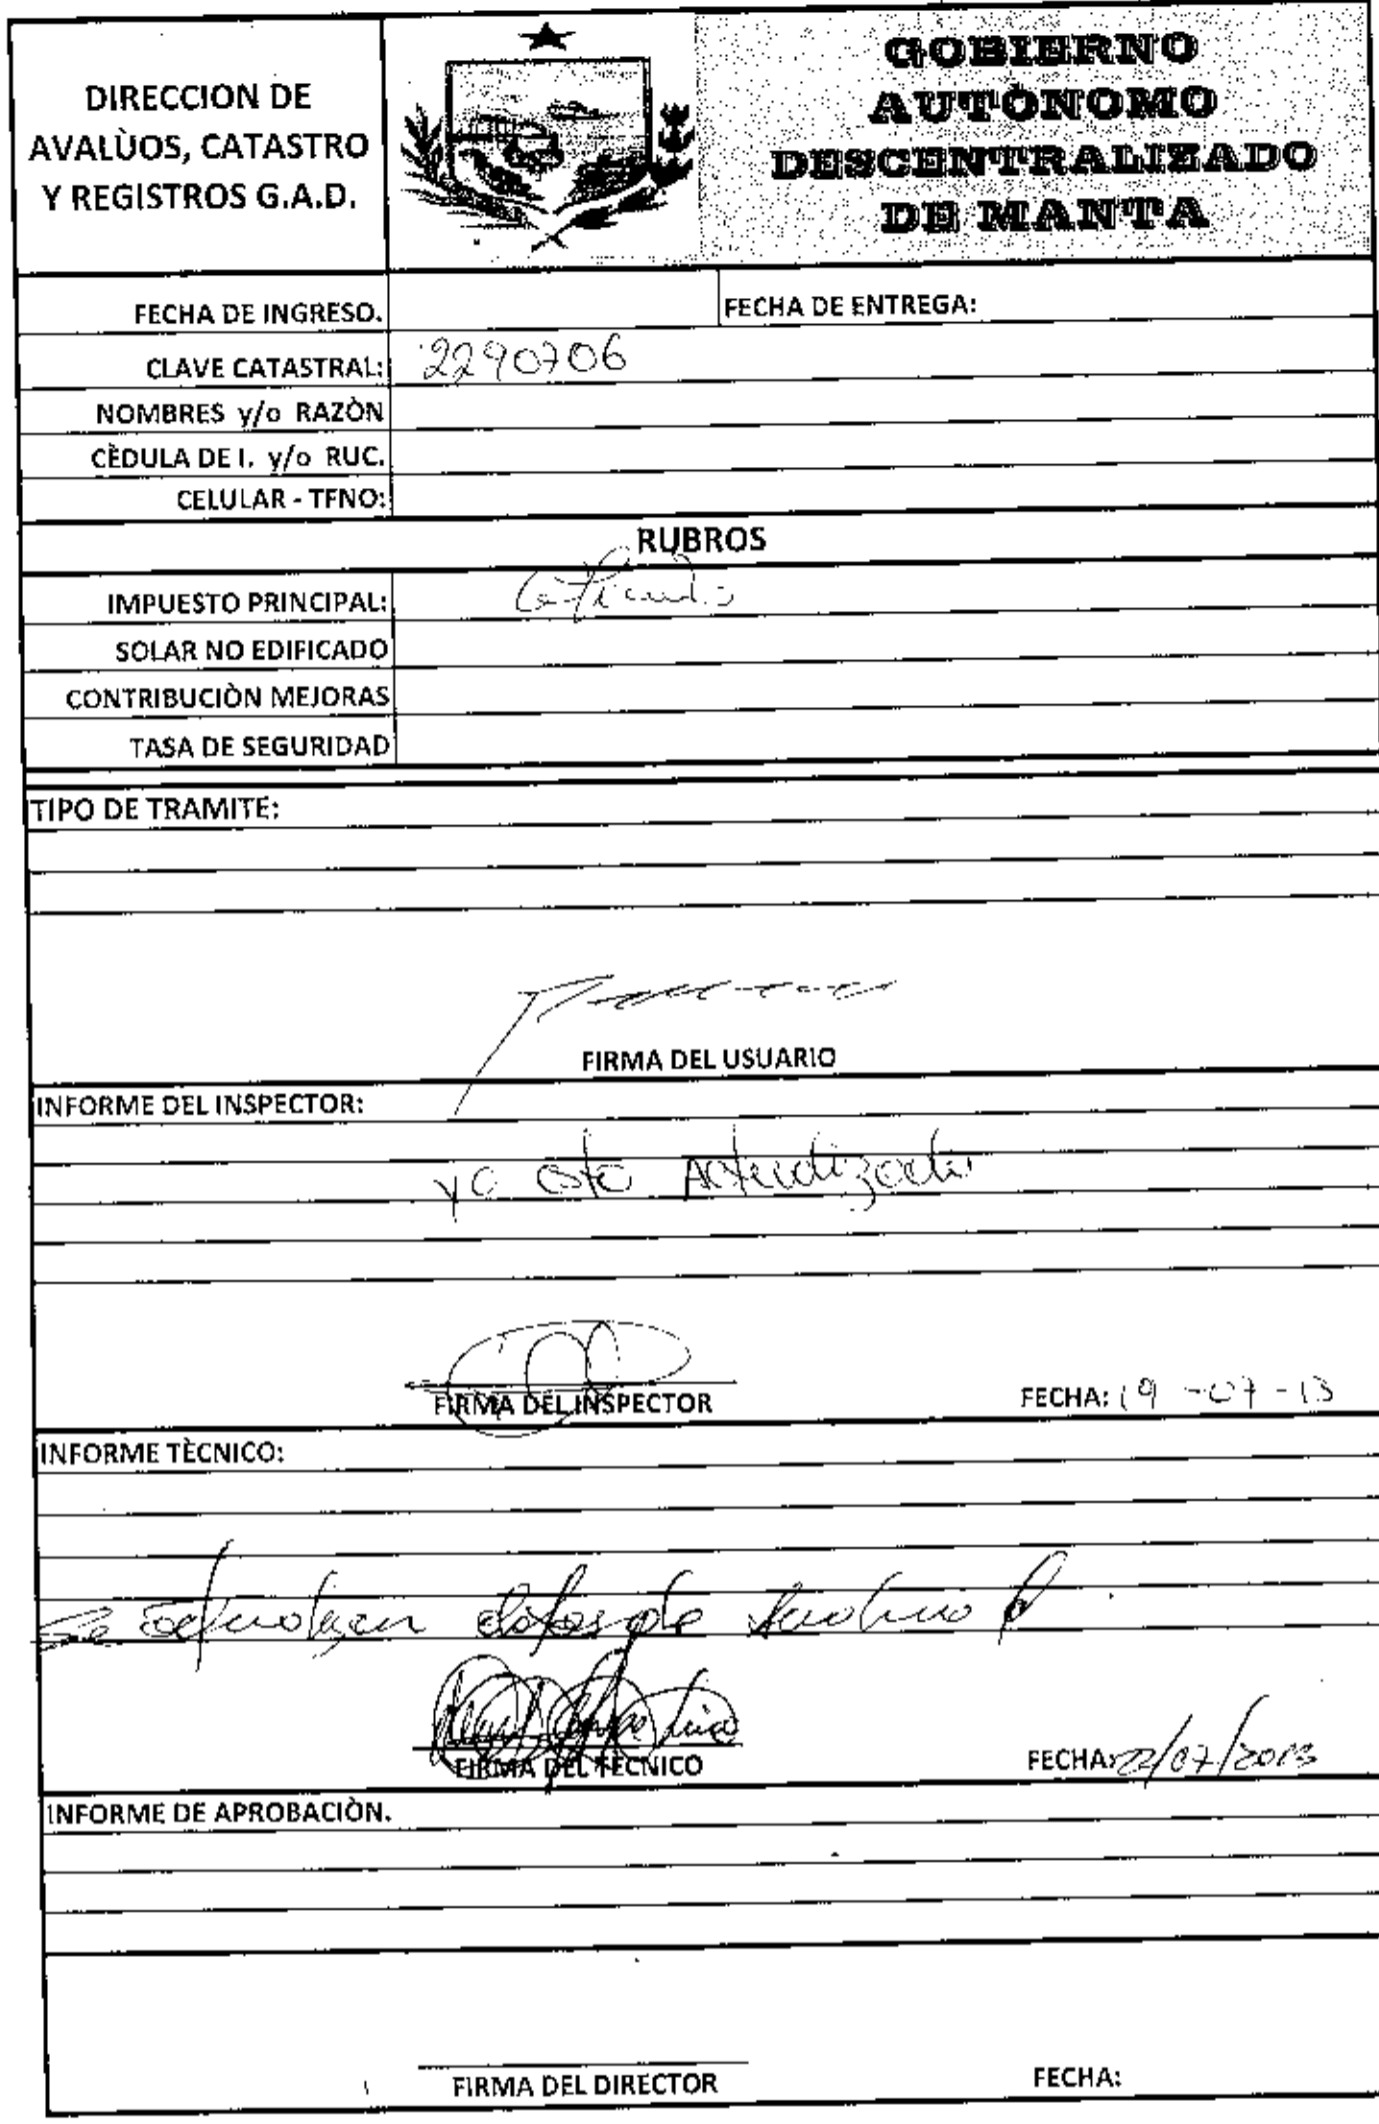 DIRECCION DE
AVALÙOS, CATASTRO
Y REGISTROS G.A.D.
GOBIERNO
AUTÒNOMO
DESCENTRALIZADO
DE MANTA
FECHA DE INGRESO.
FECHA DE ENTREGA:
CLAVE CATASTRAL: 2290706
NOMBRES y/o RAZÒN
CÈDULA DE I. y/o RUC.
CELULAR - TFNO:
RUBROS
IMPUESTO PRINCIPAL:
SOLAR NO EDIFICADO
CONTRIBUCIÒN MEJORAS
TASA DE SEGURIDAD
TIPO DE TRAMITE:
FIRMA DEL USUARIO
INFORME DEL INSPECTOR:
ya esta Actualizado
FIRMA DEL INSPECTOR
FECHA: 19-07-13
INFORME TÈCNICO:
Se
FIRMA DEL TÈCNICO
FECHA: 22/07/2013
INFORME DE APROBACIÒN.
FIRMA DEL DIRECTOR
FECHA: